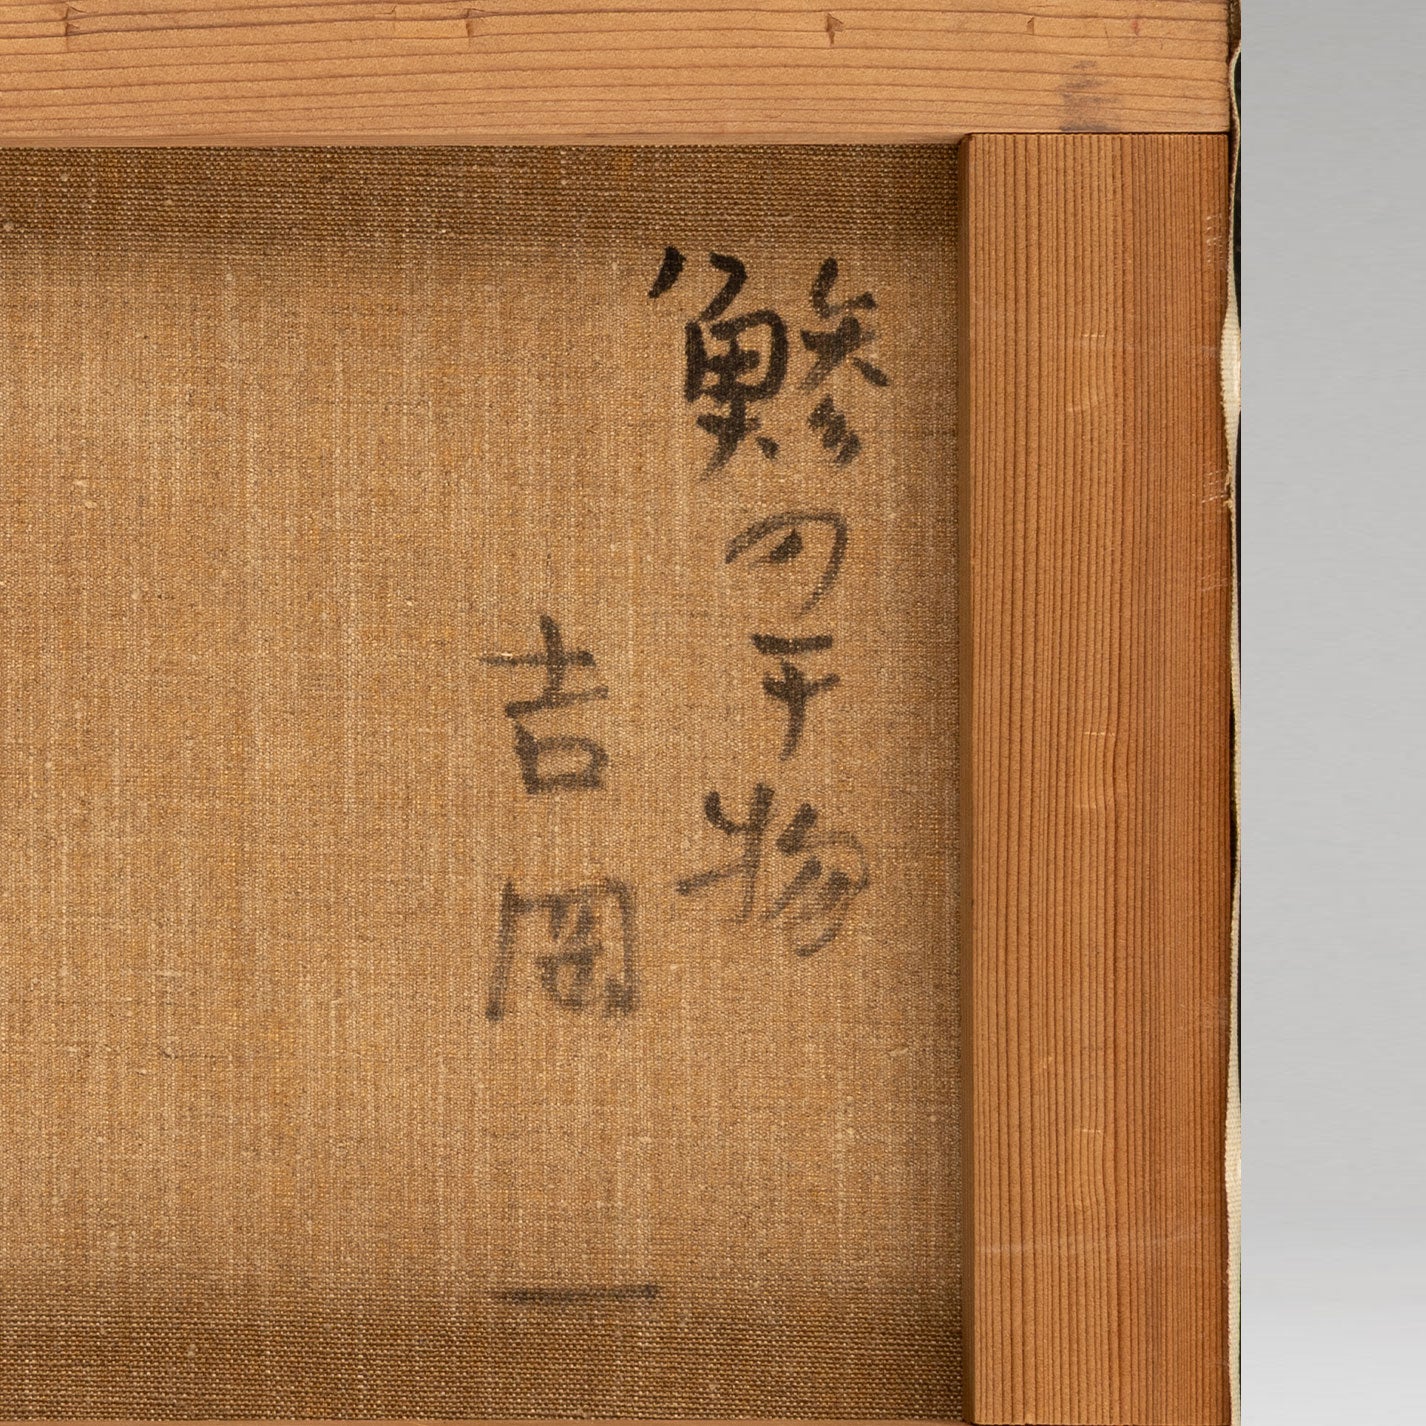 鯵の干物
吉岡一